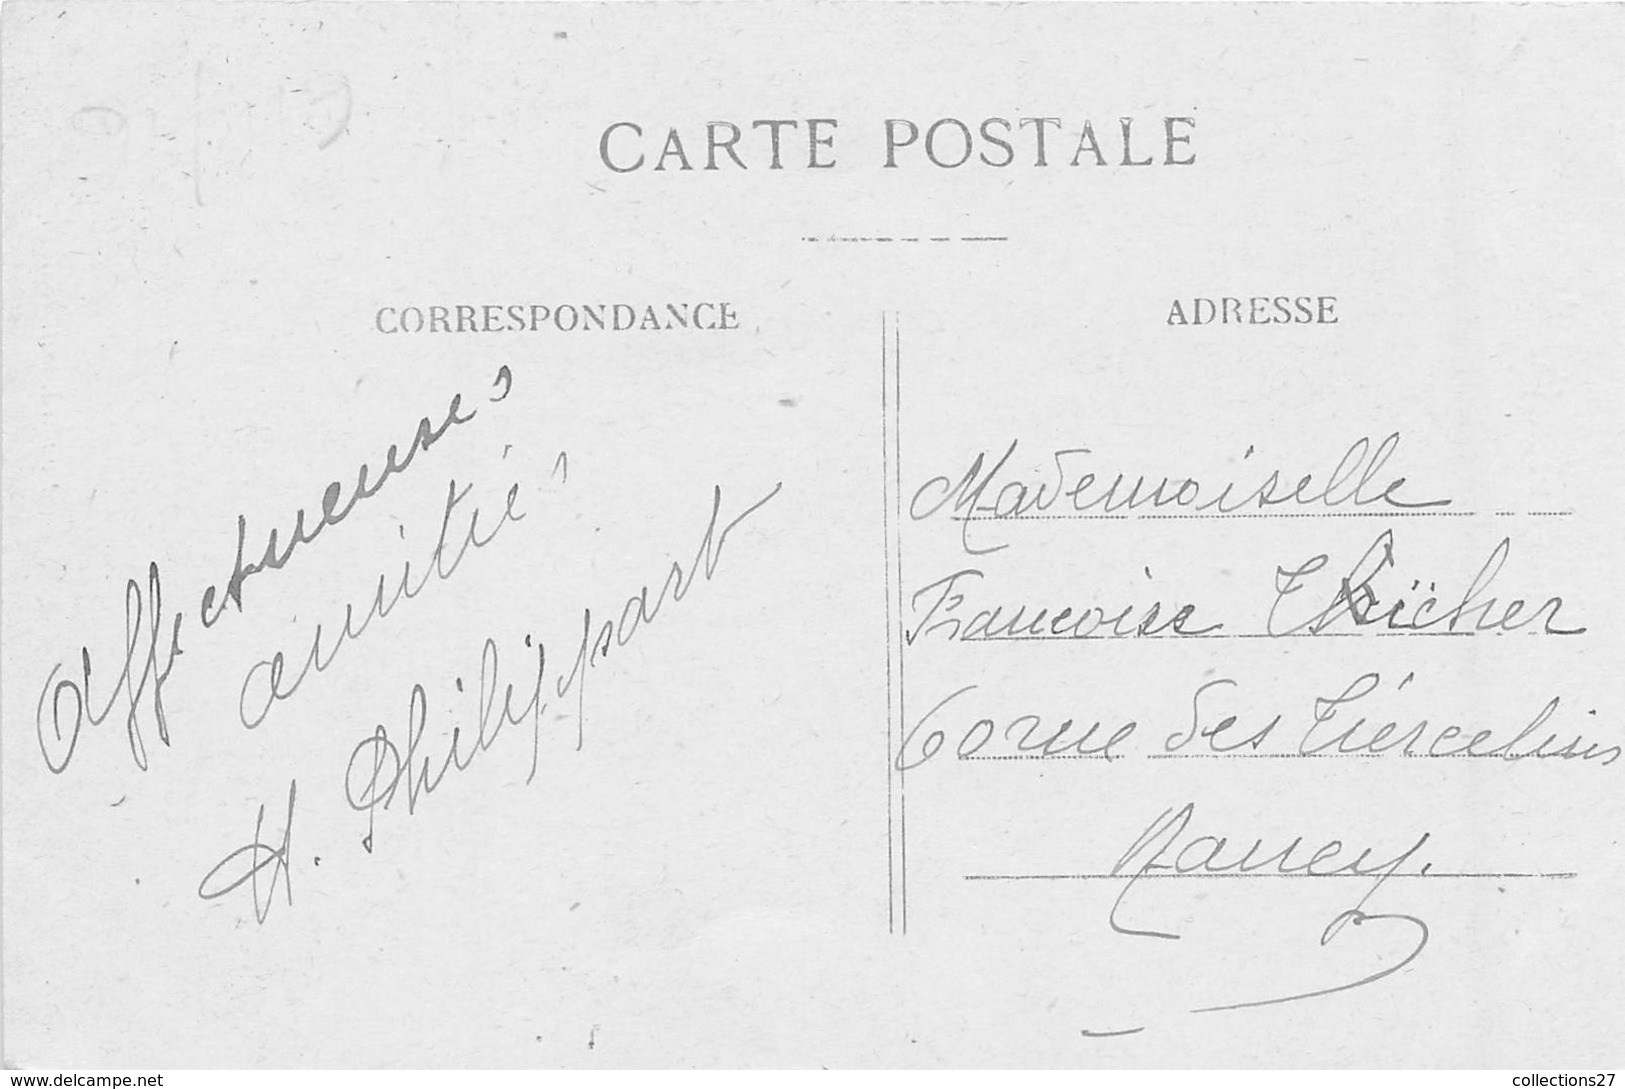 CARTE POSTALE
CORRESPONDANCE
ADRESSE
Affectueuses
amitiés
H. Philippart
Mademoiselle
Françoise
60 rue des Tiercelins
Nancy.
www.delcampe.net
collections27